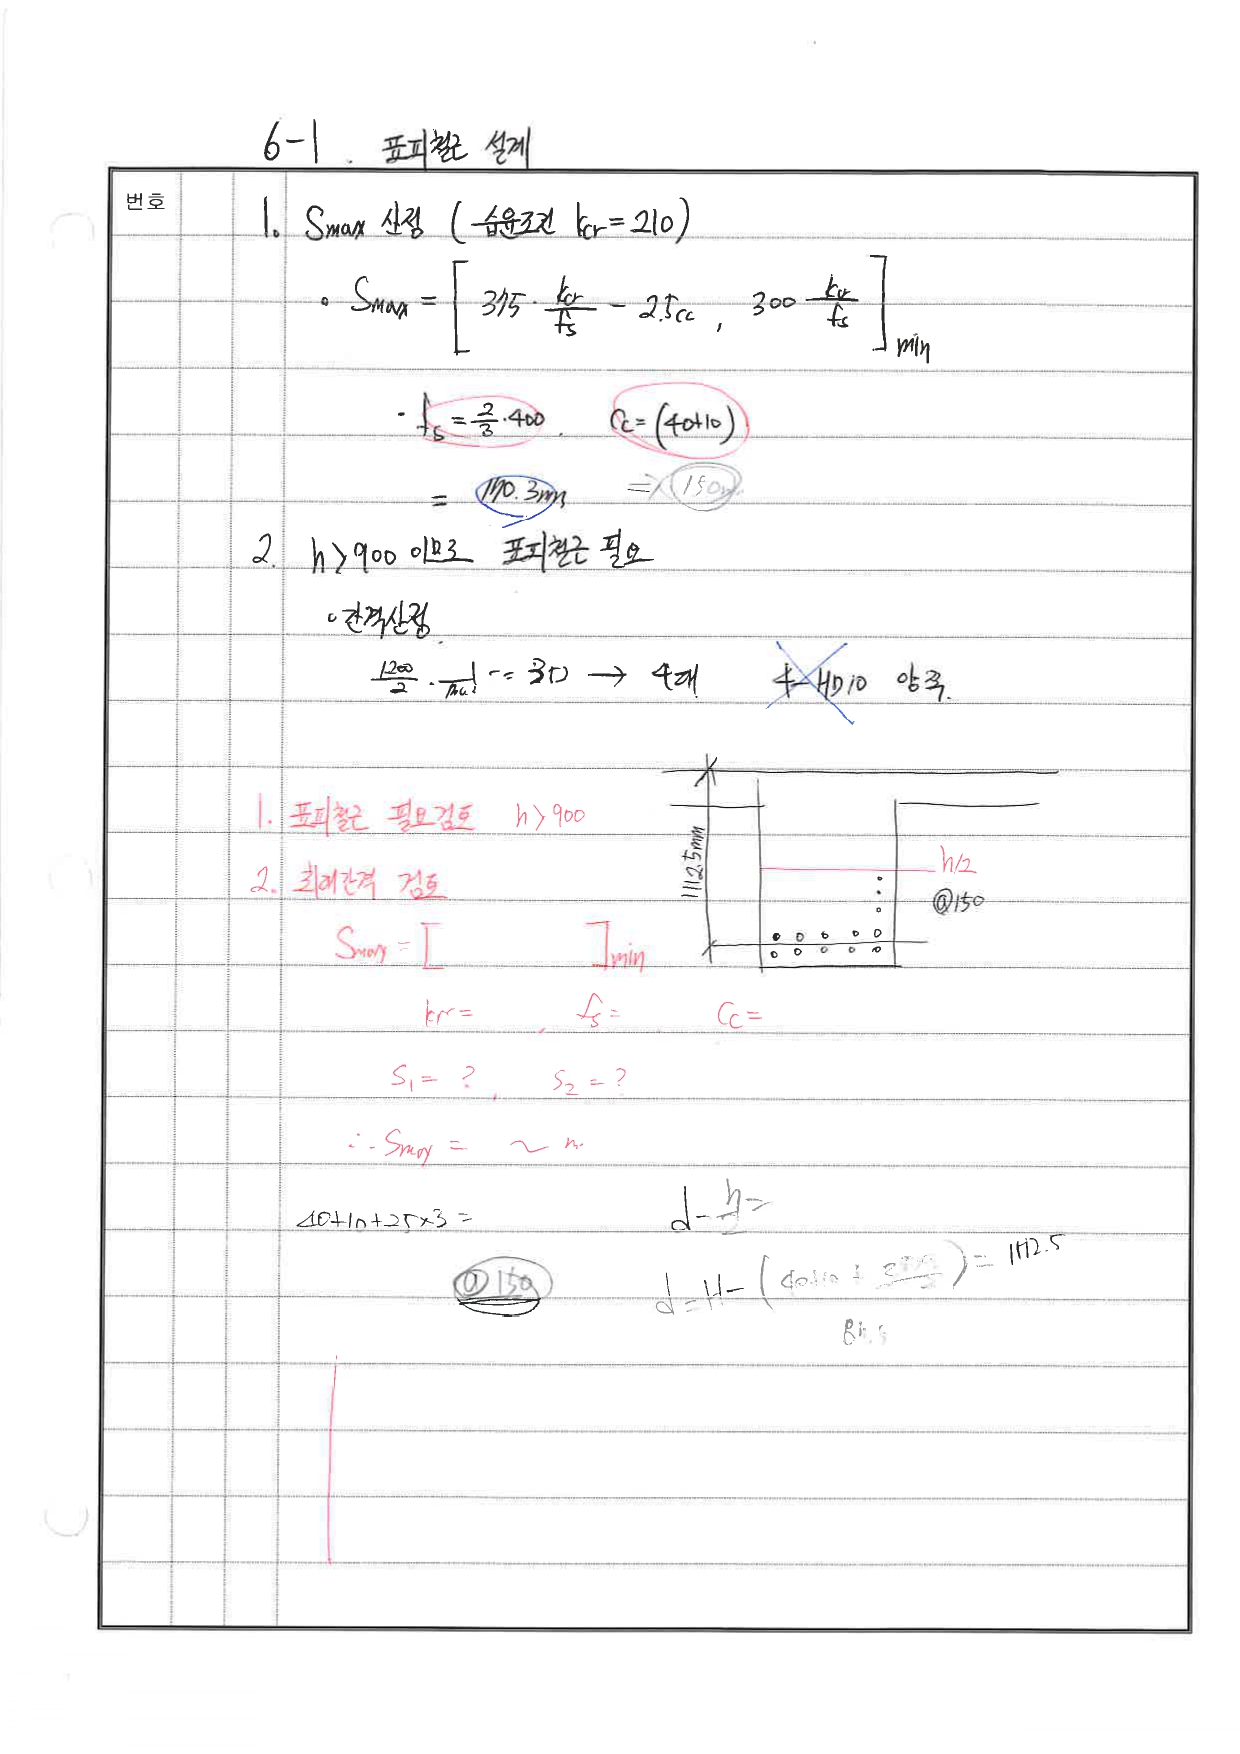 6-1. 표피철근 설계
번호
1. Smax 산정 (습윤조건 kcr = 210)
• Smax = [ 375 · kcr/fs - 2.5cc , 300 kcr/fs ] min
· fs = 2/3 · 400 . Cc = (40+10)
= 170.3mm ⇒ 150
2. h > 900 이므로 표피철근 필요
• 간격산정.
1200/2 · → 4개 4-HD10 양쪽.
1. 표피철근 필요검토 h > 900
2. 최대간격 검토
Smax = [ ] min
kcr = , fs = Cc =
S1 = ? , S2 = ?
∴ Smax = ~ m.
1112.5mm
h/2
@150
40+10+25×3 =
d - h/2 =
@150
d = H - (40+10 + ) = 1112.5